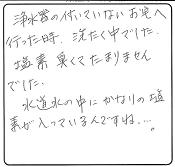 浄水器の付いていないお宅へ
行った時、洗たく中でした。
塩素臭くてたまりません
でした。
水道水の中にかなりの塩
素が入っているんですね…。